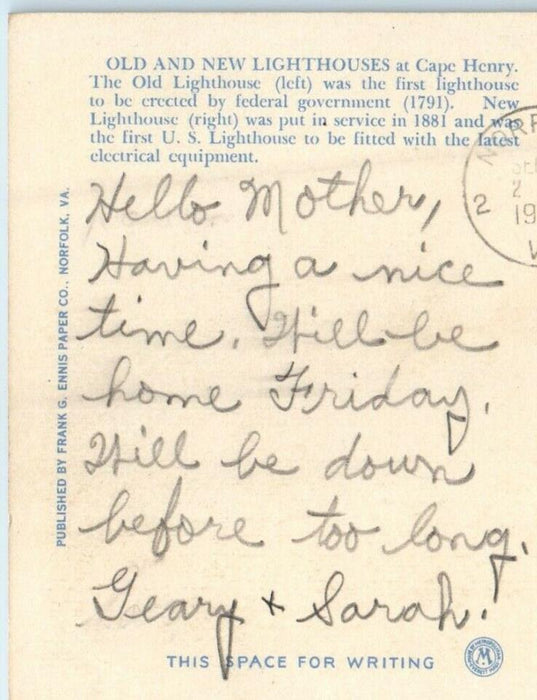 OLD AND NEW LIGHTHOUSES at Cape Henry.
The Old Lighthouse (left) was the first lighthouse
to be erected by federal government (1791). New
Lighthouse (right) was put in service in 1881 and was
the first U. S. Lighthouse to be fitted with the latest
electrical equipment.
PUBLISHED BY FRANK G. ENNIS PAPER CO., NORFOLK, VA.
NORF
2
2
19
Hello Mother,
Having a nice
time. Will be
home Friday.
Will be down
before too long.
Geary + Sarah.
THIS SPACE FOR WRITING
M